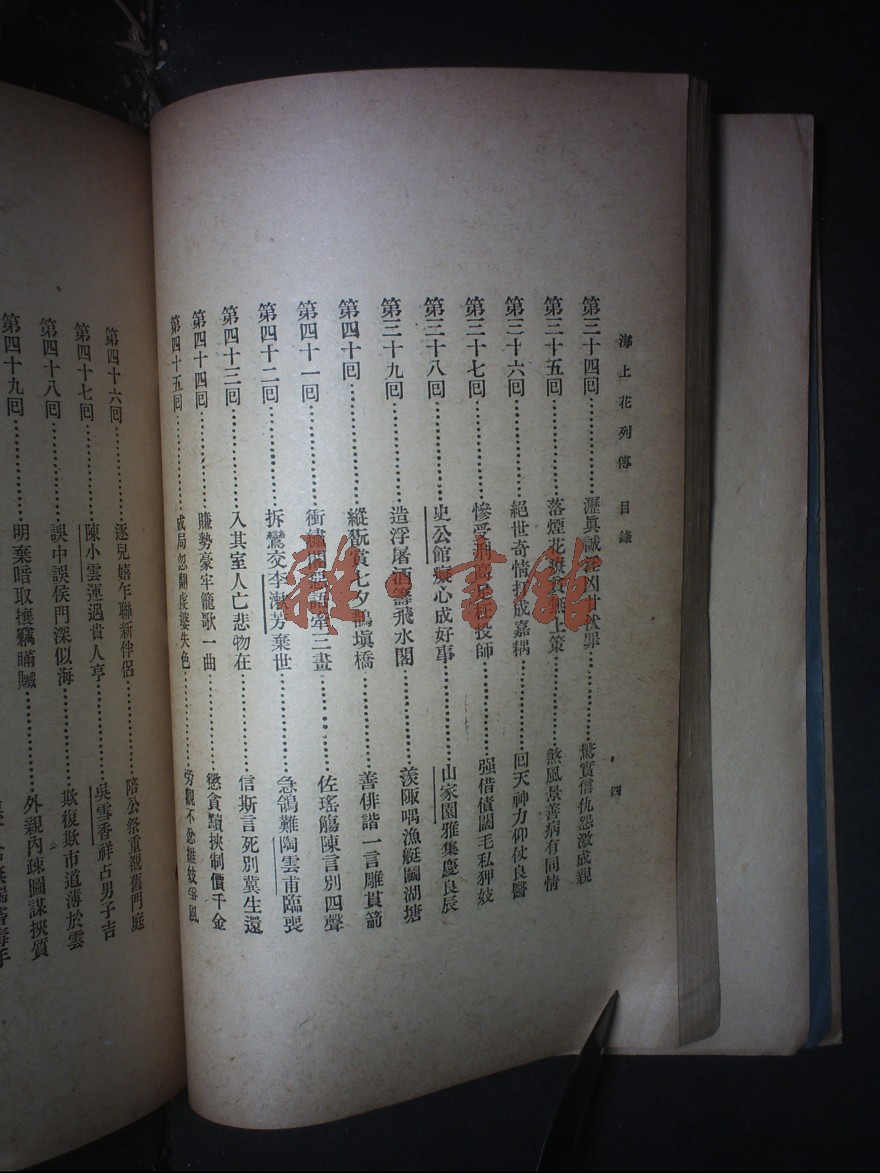 海上花列傳 目錄 四
第三十四回…………瀝眞誠淫凶甘伏罪…………驚實信仇怨激成親
第三十五回…………落煙花療貧無上策…………煞風景善病有同情
第三十六回…………絕世奇情打成嘉耦…………回天神力仰仗良醫
第三十七回…………慘受刑高足枉投師…………强借債闊毛私狎妓
第三十八回…………史公館癡心成好事…………山家園雅集慶良辰
第三十九回…………造浮屠酒籌飛水閣…………羨陬喁漁艇鬭湖塘
第四十回…………縱翫賞七夕鵲塡橋…………善俳諧一言雕貫箭
第四十一回…………衝繡閣惡語牽三畫…………佐瑤觴陳言別四聲
第四十二回…………拆鸞交李漱芳棄世…………急鴒難陶雲甫臨喪
第四十三回…………入其室人亡悲物在…………信斯言死別冀生還
第四十四回…………賺勢豪牢籠歌一曲…………懲貪黷挾制價千金
第四十五回…………成局忽翻虔婆失色…………旁觀不忿雛妓爭風
第四十六回…………逐兒嬉乍聯新伴侶…………陪公祭重覩舊門庭
第四十七回…………陳小雲運遇貴人亨…………吳雪香祥占男子吉
第四十八回…………誤中誤侯門深似海…………欺復欺市道薄於雲
第四十九回…………明棄暗取攘竊贓…………外親內疎圖謀挾質
雜·書館